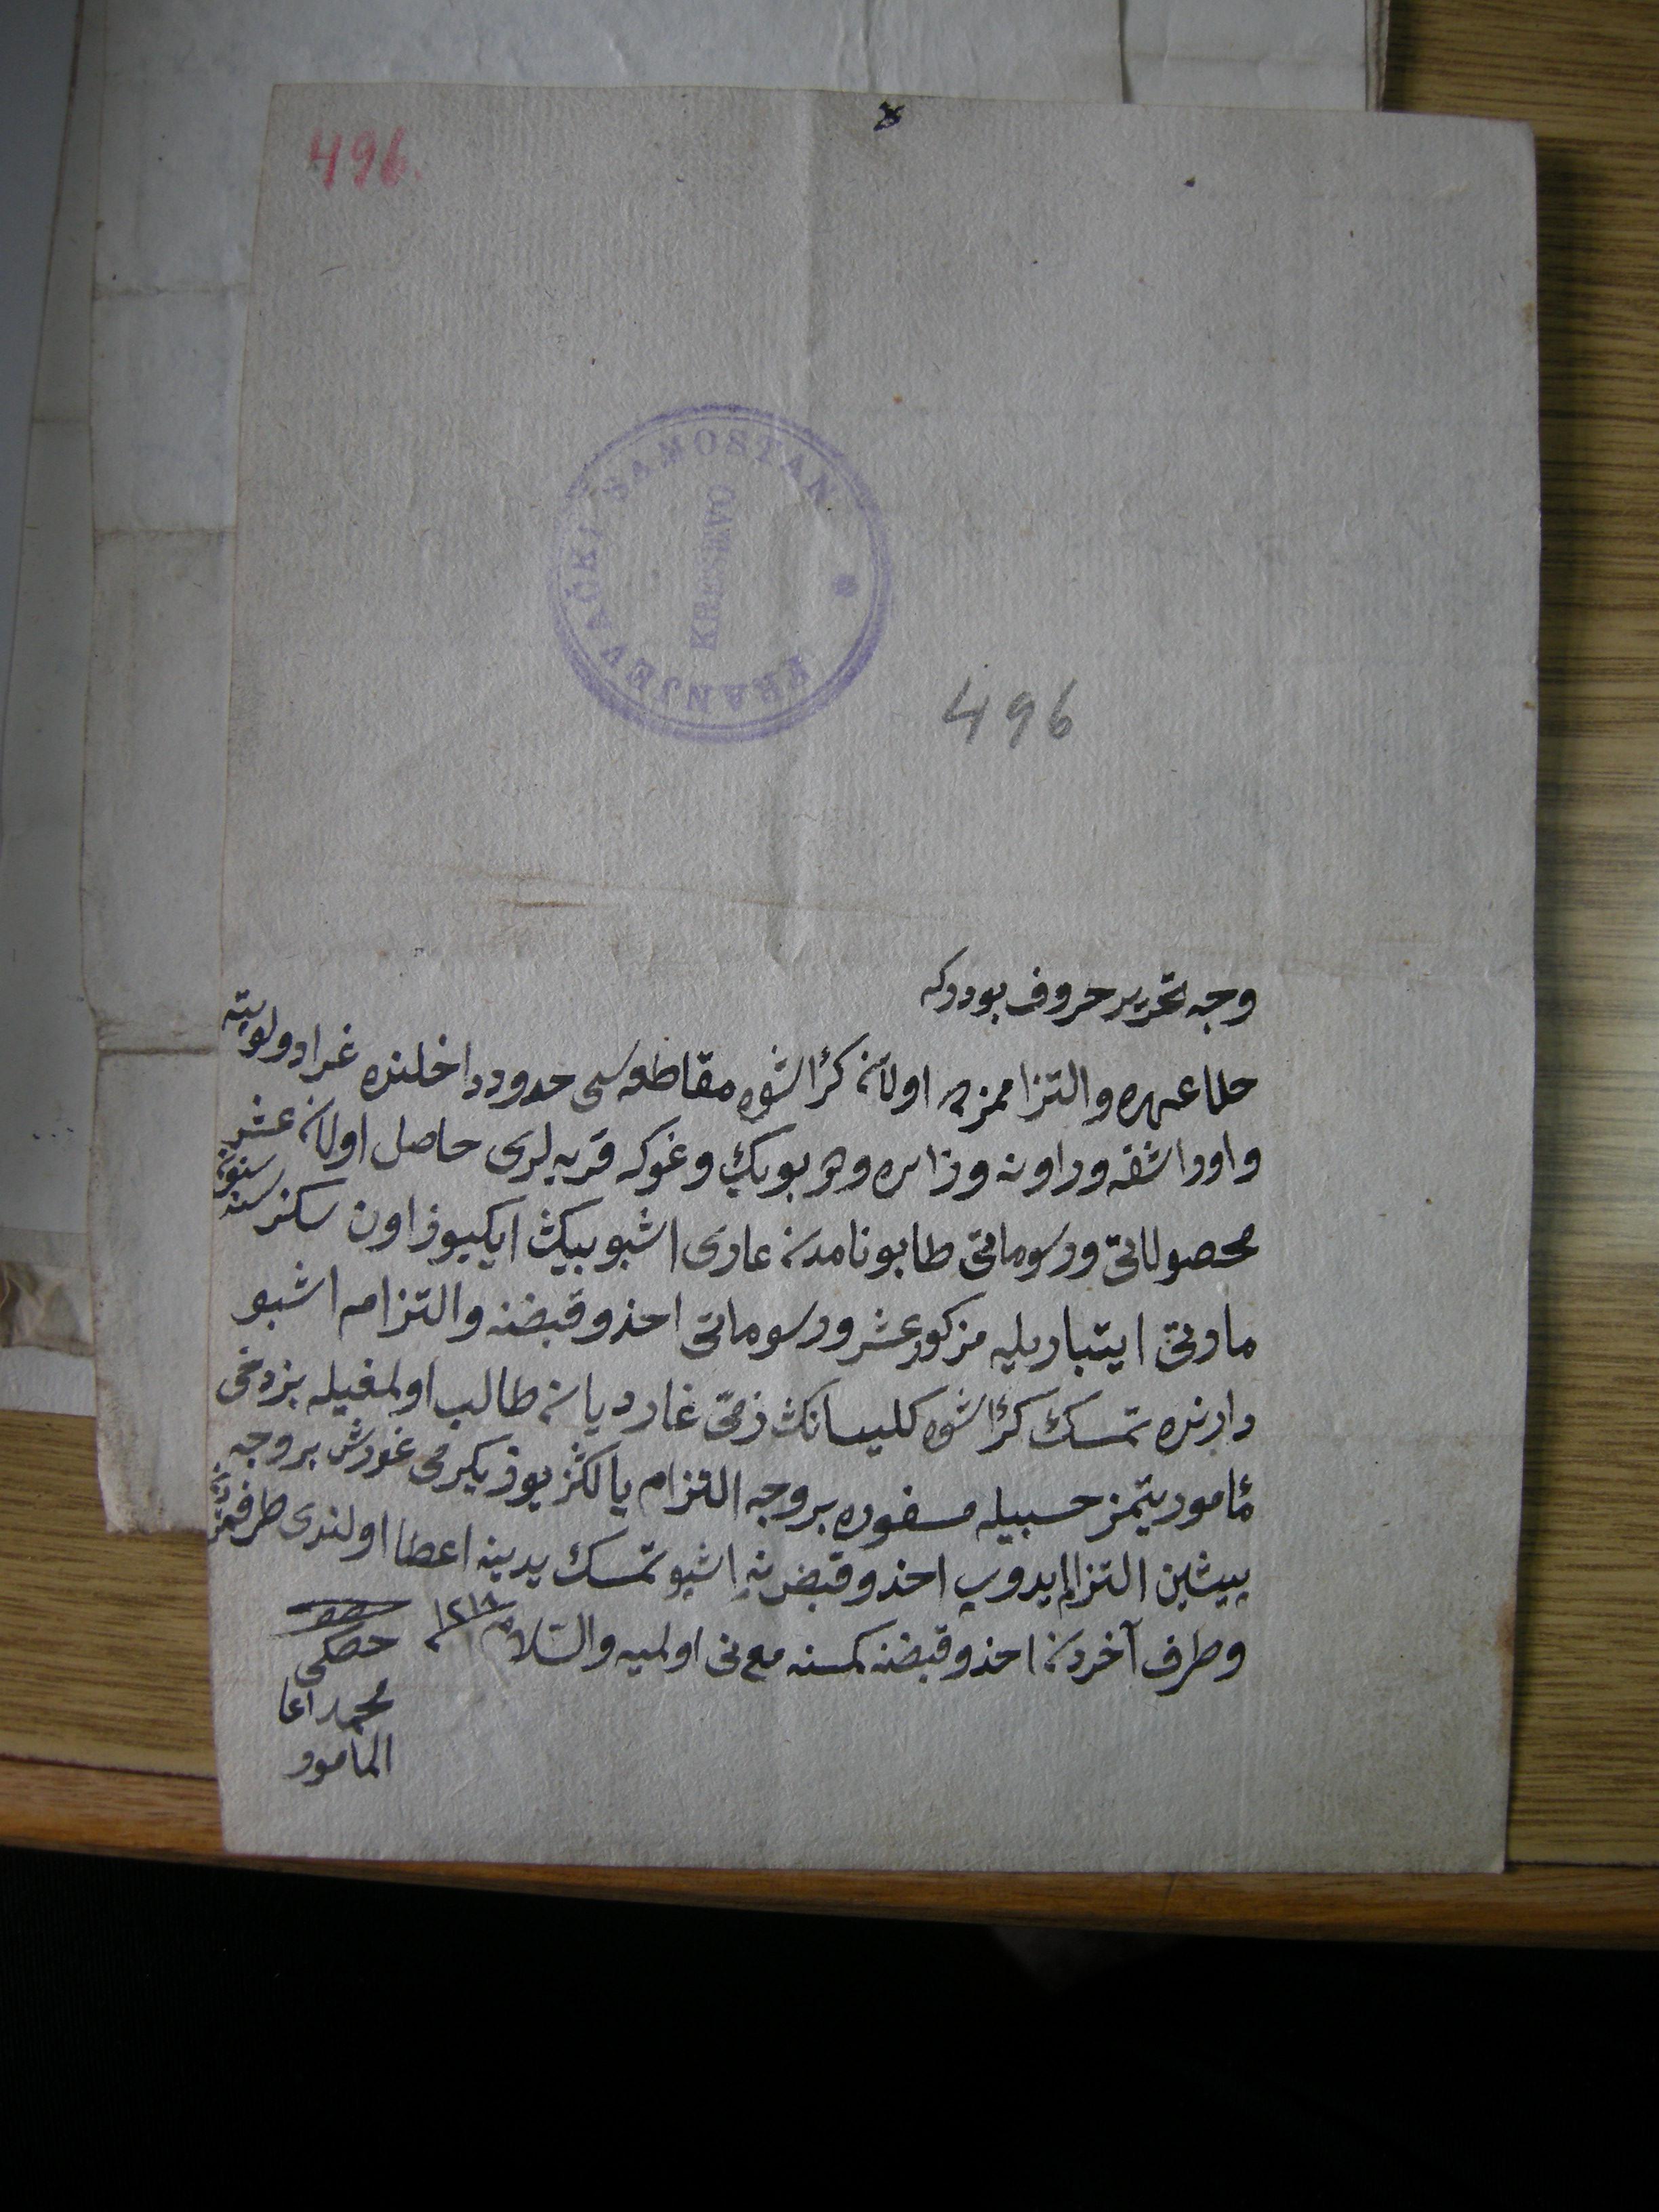 496
FRANJEVAČKI SAMOSTAN
KREŠEVO
496
وجه تحرير حروف بودركه
حالا عهده والتزاممزده اولان كراشوه مقاطعه سى حدود داخلنده غرادولويته
واوراشقه وراونه وزاره و وغوكه قريه لرى حاصل اولان عشر
محصولاتى ورسوماتى طابونامدن عارى اشبو بيك ايكيوز اون سكز سنه
مارتى ايتباريله مزكور عشر ورسوماتى اخذ وقبضنه والتزامه اشبو
دارنده تمسك كراشوه كليسانك زمى غارديان طالب اولمغيله بزدخى
مأموريتمز حسبيله مسفوره بروجه التزام يالكز يوز يكرمى غورش بروجه
پيشين التزام ايدوب اخذ وقبضنه اشبو تمسك يدينه اعطا اولندى طرفمزدن
وطرف آخردن اخذ وقبضنه كمسنه مانع اولميه والسلام ١٢١٨
حصكى
محمد اغا
المامور